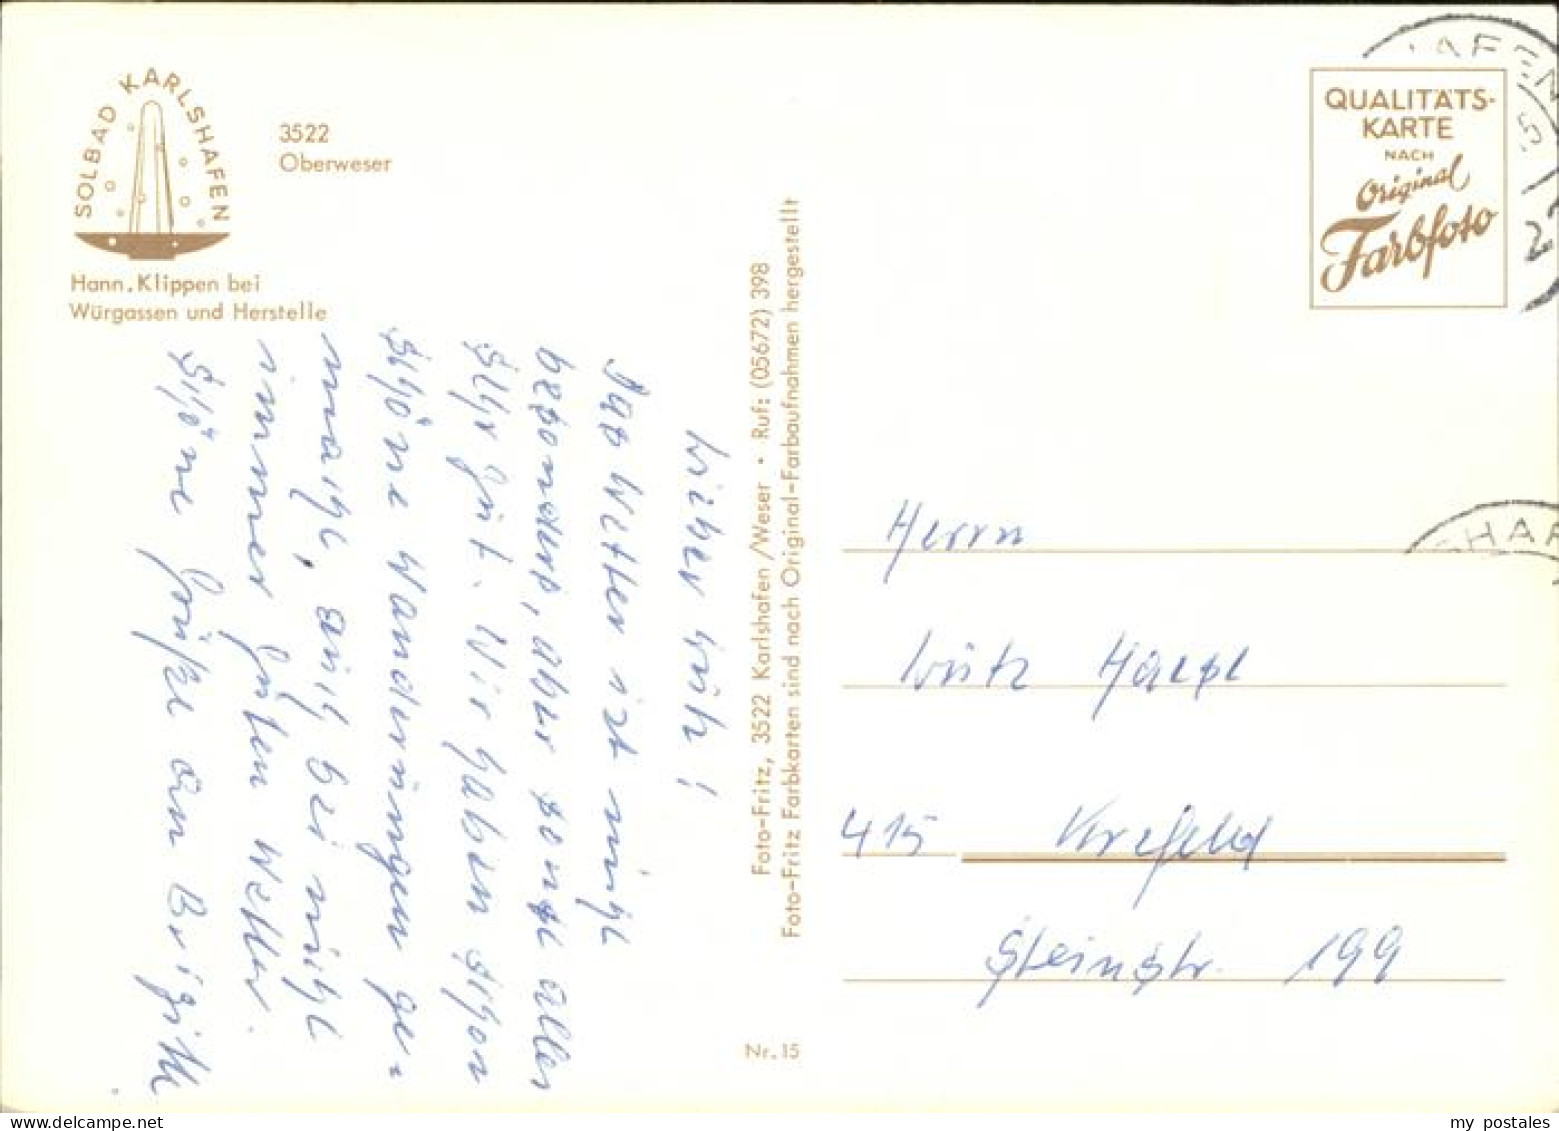 SOLBAD KARLSHAFEN
3522
Oberweser
Hann. Klippen bei
Würgassen und Herstelle
QUALITÄTS-
KARTE
NACH
Original
Farbfoto
AFEN
HAF
Foto-Fritz, 3522 Karlshafen/Weser • Ruf: (05672) 398
Foto-Fritz Farbkarten sind nach Original-Farbaufnahmen hergestellt
Nr. 15
Das Wetter ist nicht
besonders, aber sonst alles
sehr gut. Wir haben schon
schöne Wanderungen ge-
macht, auch bei nicht
immer gutem Wetter.
Schöne Grüße
Herrn
415 Krefeld
Steinstr. 199
my postales